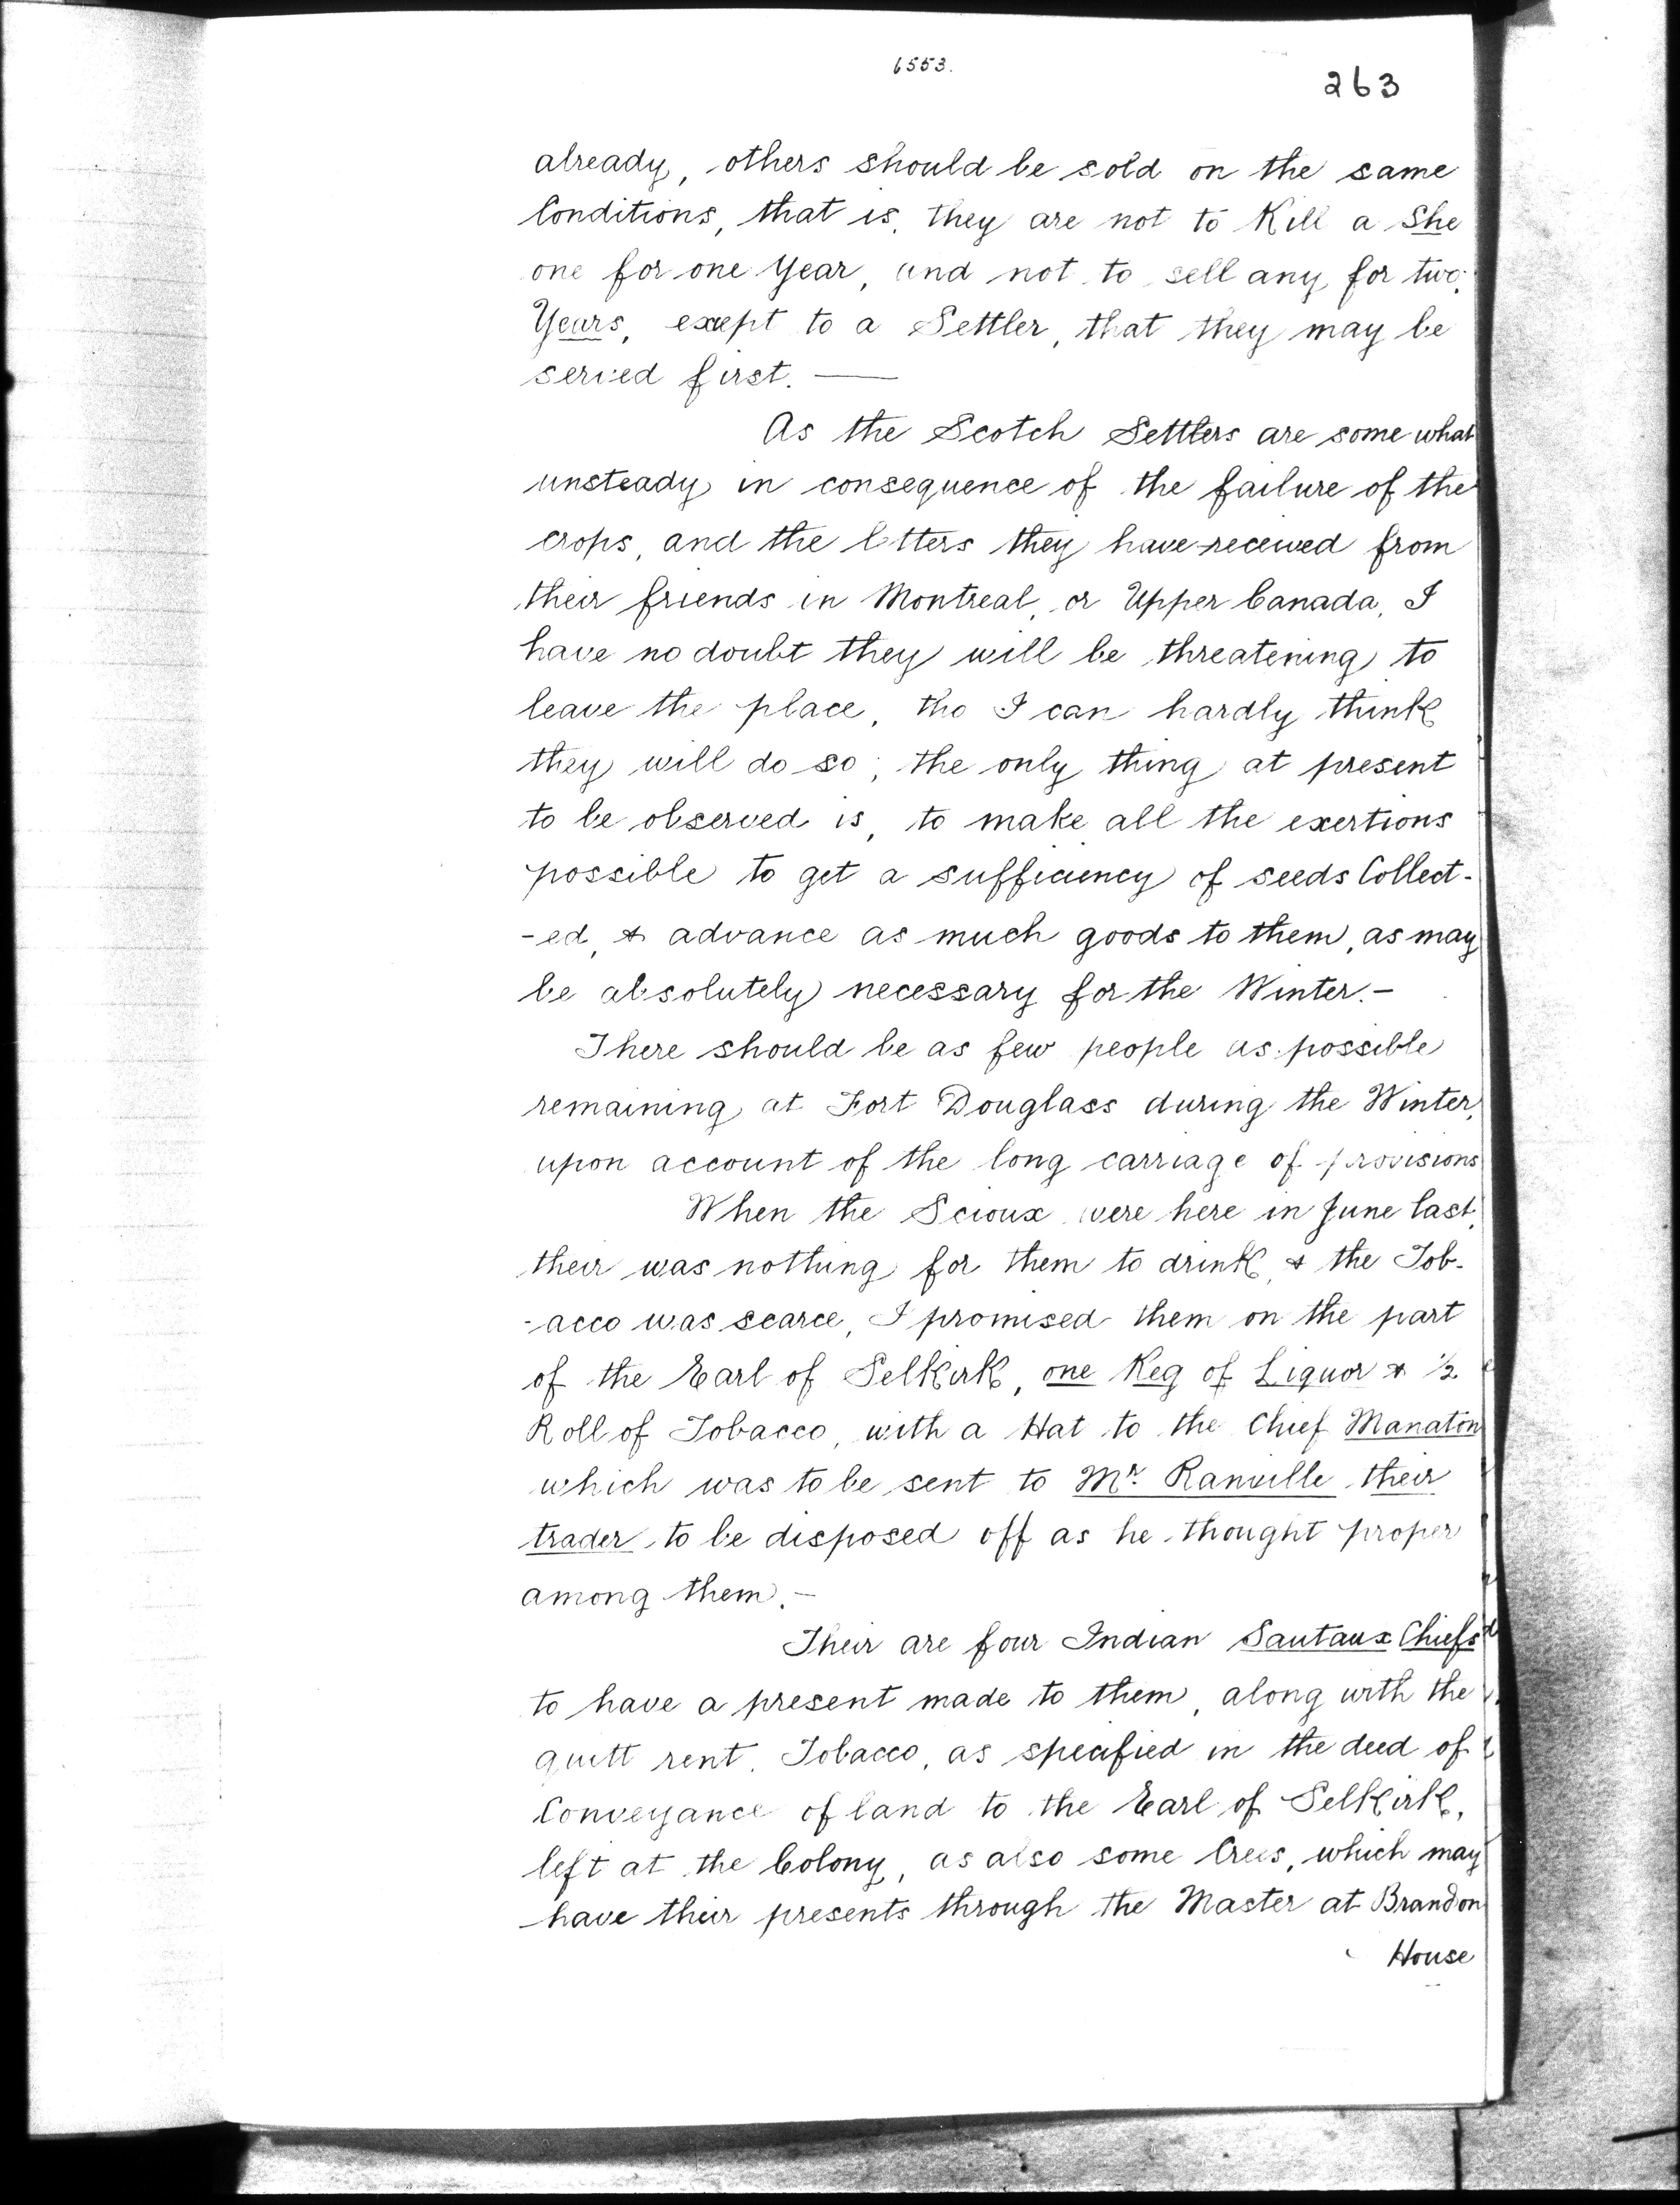 6553.
263
already, others should be sold on the same
Conditions, that is, they are not to Kill a She
one for one Year, and not to sell any for two
Years, except to a Settler, that they may be
served first. —
As the Scotch Settlers are some what
unsteady in consequence of the failure of the
crops, and the letters they have received from
their friends in Montreal, or Upper Canada, I
have no doubt they will be threatening to
leave the place, tho I can hardly think
they will do so; the only thing at present
to be observed is, to make all the exertions
possible to get a sufficiency of seeds Collect-
-ed, & advance as much goods to them, as may
be absolutely necessary for the Winter. -
There should be as few people as possible
remaining at Fort Douglass during the Winter,
upon account of the long carriage of provisions
When the Scioux were here in June last,
their was nothing for them to drink, & the Tob-
-acco was scarce, I promised them on the part
of the Earl of Selkirk, one Keg of Liquor & ½
Roll of Tobacco, with a Hat to the Chief Manaton
which was to be sent to Mr. Ranville their
trader to be disposed off as he thought proper
among them. -
Their are four Indian Sautaux Chiefs
to have a present made to them, along with the
quitt rent. Tobacco, as specified in the deed of
Conveyance of land to the Earl of Selkirk,
left at the Colony, as also some Crees, which may
have their presents through the Master at Brandon
House